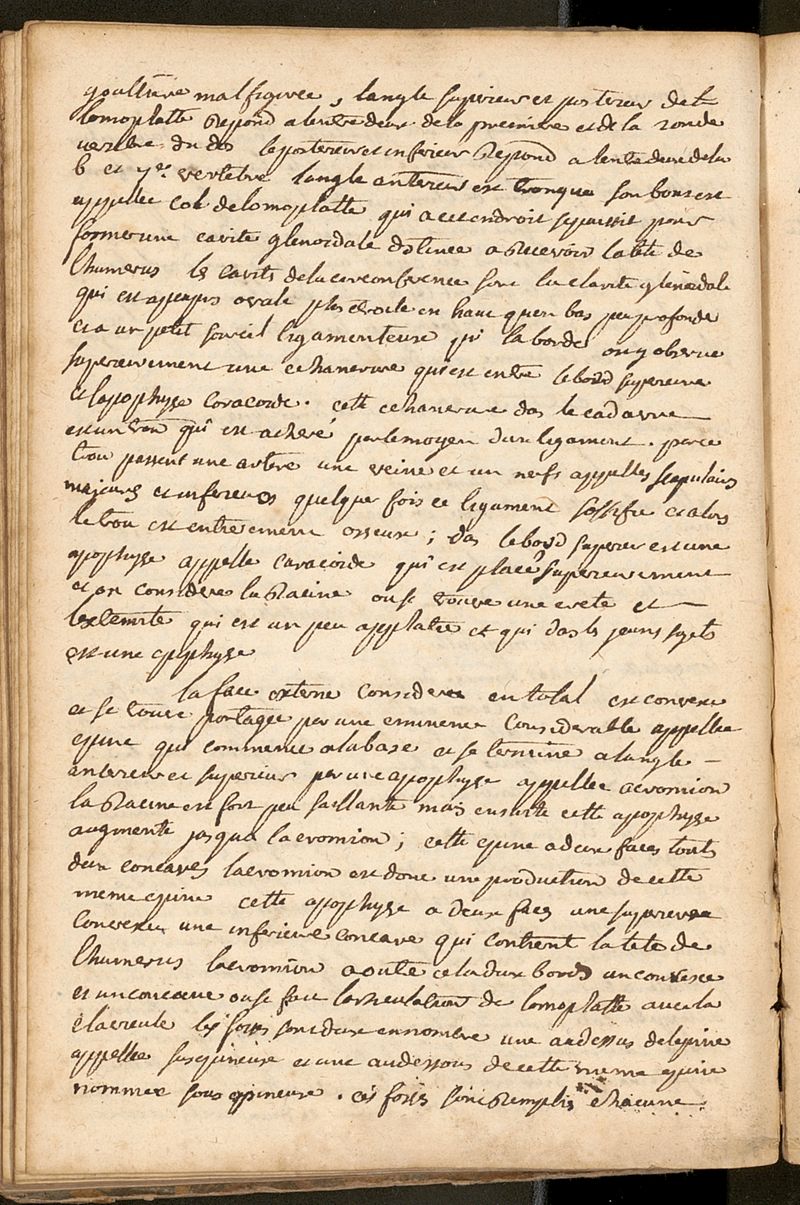 gouttiere mal figuree, langle superieur et posterieur de l
lomoplatte Repond a lentredeux de la premiere et de la 2onde
vertebre du dos le posterieur et inferieur Repond a lentredeux de la
6 et 7e. vertebre langle anterieur est tronque son bout est
appellee col de lomoplatte qui a cet endroit sepaissit pour
former une cavite glenoidale destinee a Recevoir la tete de
lhumerus les cavites de la circonference sont la clavite glenoidale
qui est apeupres ovale plus etroite en haut quen bas peu profonde
et a un petit sourcil ligamenteux qui la borde on y observe
superieurement une echancrure qui est entre le bord superieur
et lapophyse coracoide. cette echancrure das le cadavre
est un trou qui est acheve par le moyen dun ligament. par ce
trou passent une artere une veine et un nerfs appelles scapulaires
majeures et inferieurs quelque fois ce ligament sossifie et alors
le trou est entierement osseux; das le bord superieur est une
apophyse appelle caracoide qui est placé superieurement
et on considere la Racine ou se trouve une crete et
lextemite qui est un peu applatie et qui das ls jeuns sujets
est une epiphyse
la face externe consideree en total est convexe
et se trouve partagee par une eminence considerable appellee
epine qui commence a la base et se termine a langle
anterieur et superieur par une apophyse appellee acromion
la Racine est fort peu saillante mais ensuite cette apophyse
augmente jusqua lacromion; cette epine a deux faces touts
deux concaves lacromion est donc une production de cette
meme epine cette apophyse a deux faces une superieure
convexe une inferieure concave qui contient la tete de
lhumerus lacromion a oute cela deux bords un convexe
et un concave ou se fait larticulation de lomoplatte avec la
clavicule les fosses sont deux en nombre une audessus de lepine
appellee susepineuse et une audessous de cette meme epine
nommee sous epineuse. ces fosses sont Remplis chacune